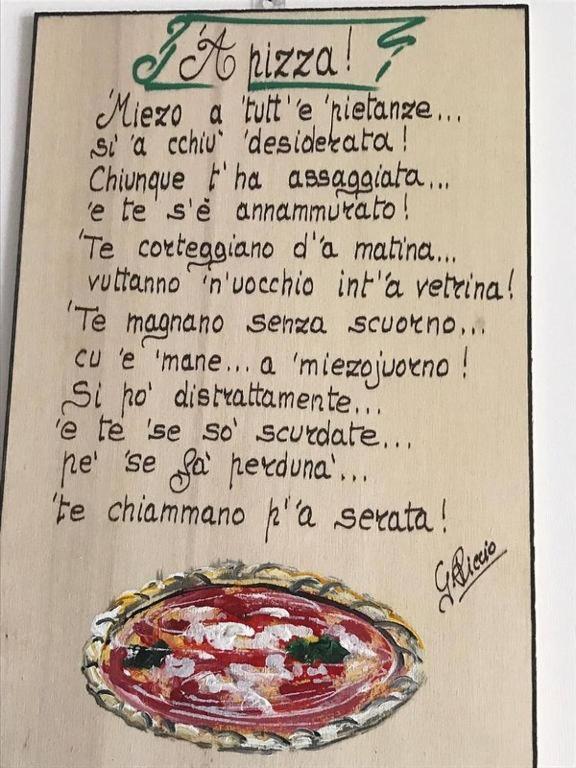 'A pizza!
'Miezo a 'tutt' 'e 'pietanze...
si' 'a cchiu' 'desiderata!
Chiunque t' ha assaggiata...
'e te s'è annammurato!
'Te corteggiano d' 'a matina...
vuttanno 'n'uocchio int' 'a vetrina!
'Te magnano senza scuorno...
cu 'e 'mane... a 'miezojuorno!
Si po' distrattamente...
'e te 'se so' scurdate...
pe' 'se fa' perduna'...
'te chiammano p' 'a serata!